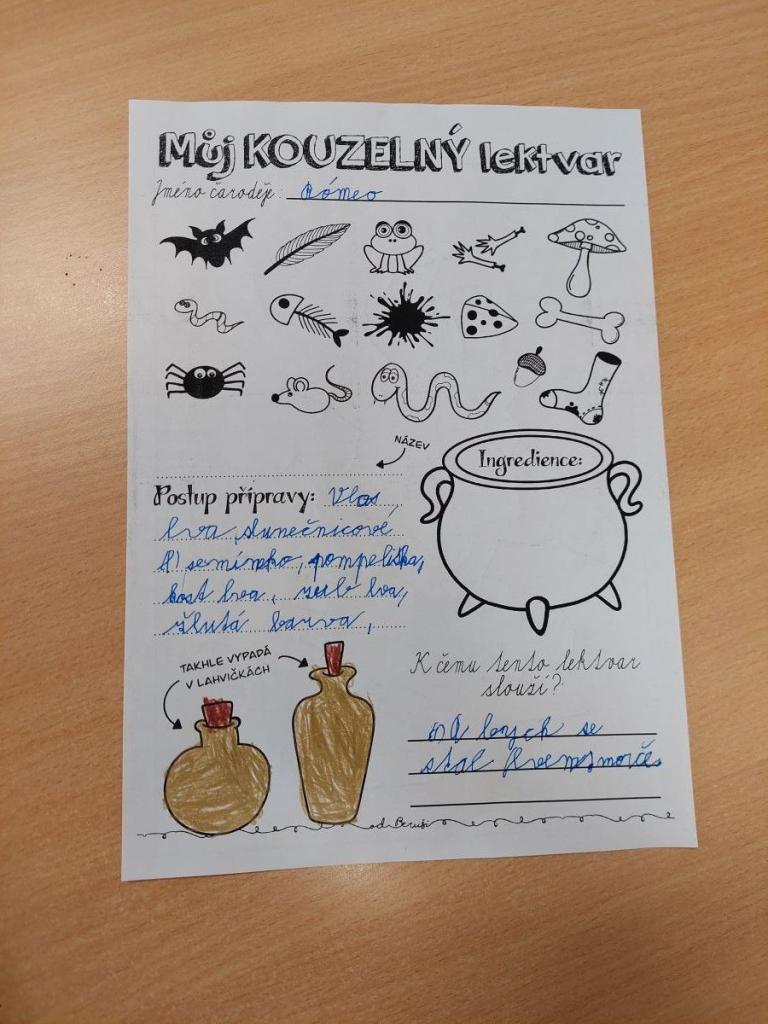 Můj KOUZELNÝ lektvar
Jméno čaroděje: Rómeo
NÁZEV
Ingredience:
Postup přípravy: Vlas
lva, slunečnicové
semínko, pompeliška,
kost lva, zub lva,
žlutá barva,
TAKHLE VYPADÁ
V LAHVIČKÁCH
K čemu tento lektvar
slouží?
bych se
stal
od Beruši